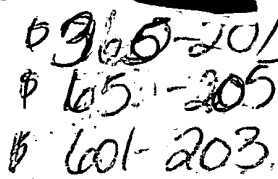 $ 365-201
$ 65.-205
$ 601-203